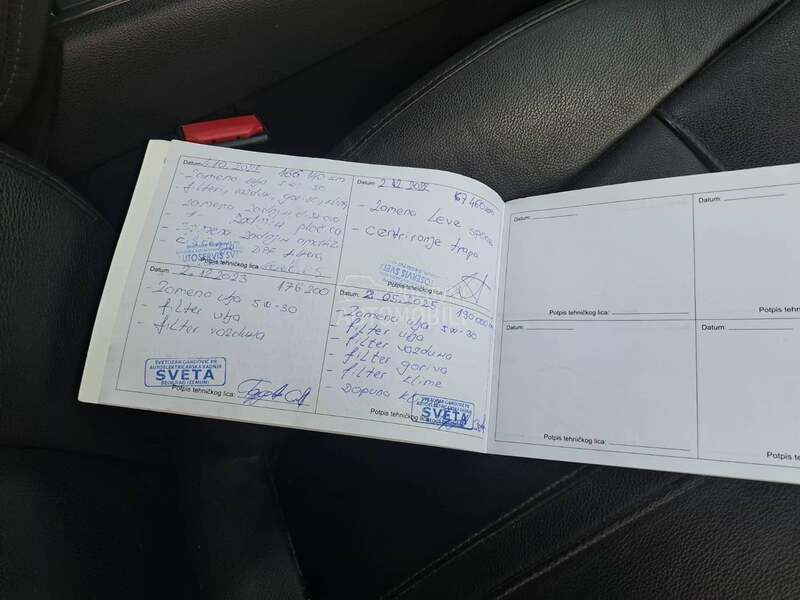 Datum: 10. 2022 166 140 km
- Zamena ulja 5w-30
- filter
- Zamena zadnjih diskova
zadnjih pločica
- zamena zadnjih
DPF filtera
UTOSERVIS SVET
Potpis tehničkog lica:
Datum: 2. 12. 2022 167 460 km
- Zamena Leve spone
- Centriranje trapa
TOSERVIS SVET
Potpis tehničkog lica:
Datum: 2.12.2023 176.200
- Zamena ulja 5w-30
- filter ulja
- filter vazduha
SVETOZAR GARGOVIĆ PR
AUTOELEKTRIČARSKA RADNJA
SVETA
BEOGRAD (ZEMUN)
Potpis tehničkog lica:
Datum: 2. 05. 2025 190 000 km
- Zamena ulja 5w-30
- filter ulja
- filter vazduha
- filter goriva
- filter klime
- Dopuna
SVETA
Potpis tehničkog lica:
Datum:
Potpis tehničkog lica:
Datum:
Potpis tehničkog lica:
Datum:
Potpis tehničkog lica:
Potpis tehničkog